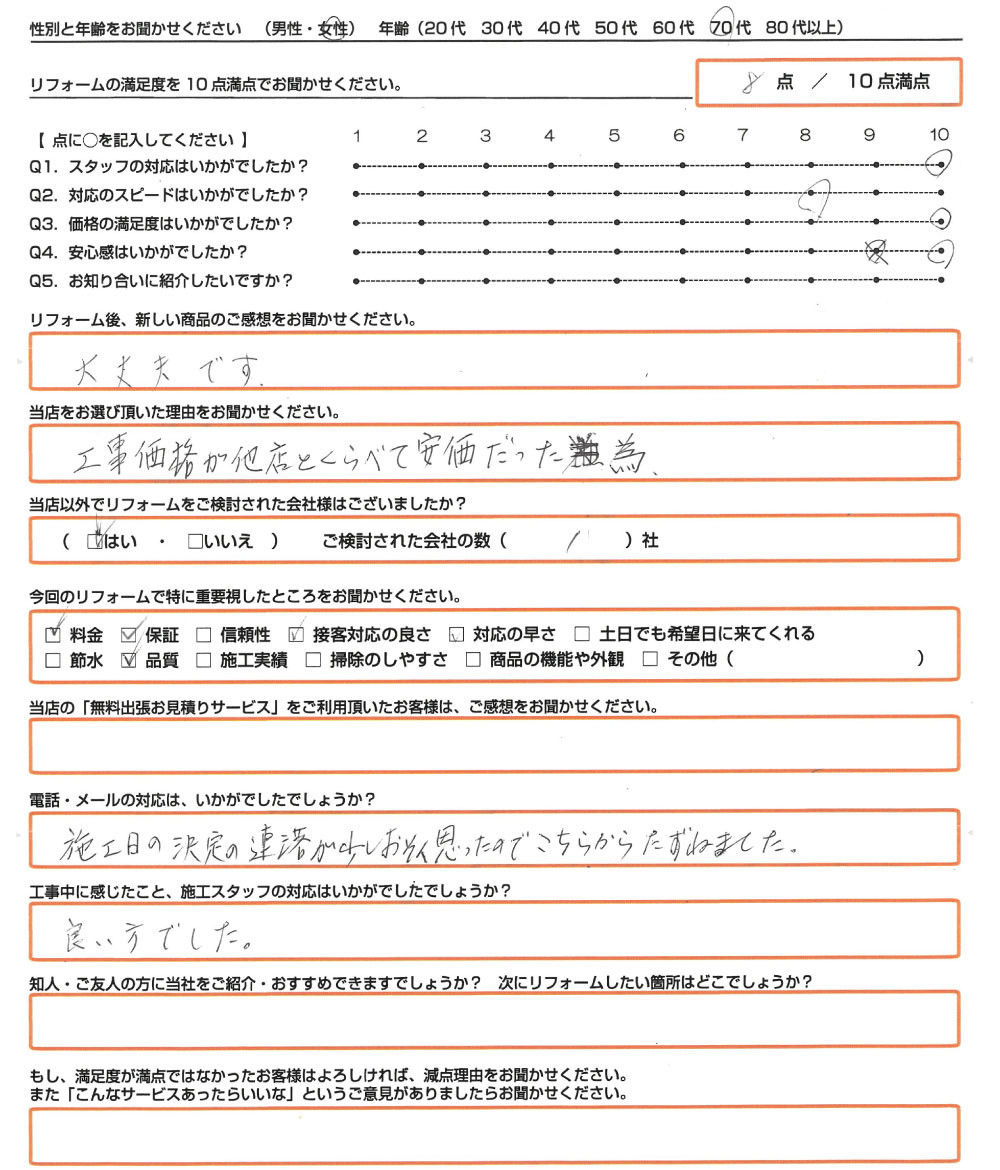 性別と年齢をお聞かせください （男性・女性） 年齢（20代 30代 40代 50代 60代 70代 80代以上）
リフォームの満足度を10点満点でお聞かせください。 8 点 / 10点満点
【 点に○を記入してください 】 1 2 3 4 5 6 7 8 9 10
Q1. スタッフの対応はいかがでしたか？
Q2. 対応のスピードはいかがでしたか？
Q3. 価格の満足度はいかがでしたか？
Q4. 安心感はいかがでしたか？
Q5. お知り合いに紹介したいですか？
リフォーム後、新しい商品のご感想をお聞かせください。
大丈夫です.
当店をお選び頂いた理由をお聞かせください。
工事価格が他店とくらべて安価だった為、
当店以外でリフォームをご検討された会社様はございましたか？
（ ☑はい ・ □いいえ ） ご検討された会社の数（ 1 ）社
今回のリフォームで特に重要視したところをお聞かせください。
☑ 料金 ☑ 保証 □ 信頼性 ☑ 接客対応の良さ ☑ 対応の早さ □ 土日でも希望日に来てくれる
□ 節水 ☑ 品質 □ 施工実績 □ 掃除のしやすさ □ 商品の機能や外観 □ その他（ ）
当店の「無料出張お見積りサービス」をご利用頂いたお客様は、ご感想をお聞かせください。
電話・メールの対応は、いかがでしたでしょうか？
施工日の決定の連落が少しおそく思ったのでこちらからたずねました。
工事中に感じたこと、施工スタッフの対応はいかがでしたでしょうか？
良い方でした。
知人・ご友人の方に当社をご紹介・おすすめできますでしょうか？ 次にリフォームしたい箇所はどこでしょうか？
もし、満足度が満点ではなかったお客様はよろしければ、減点理由をお聞かせください。
また「こんなサービスあったらいいな」というご意見がありましたらお聞かせください。